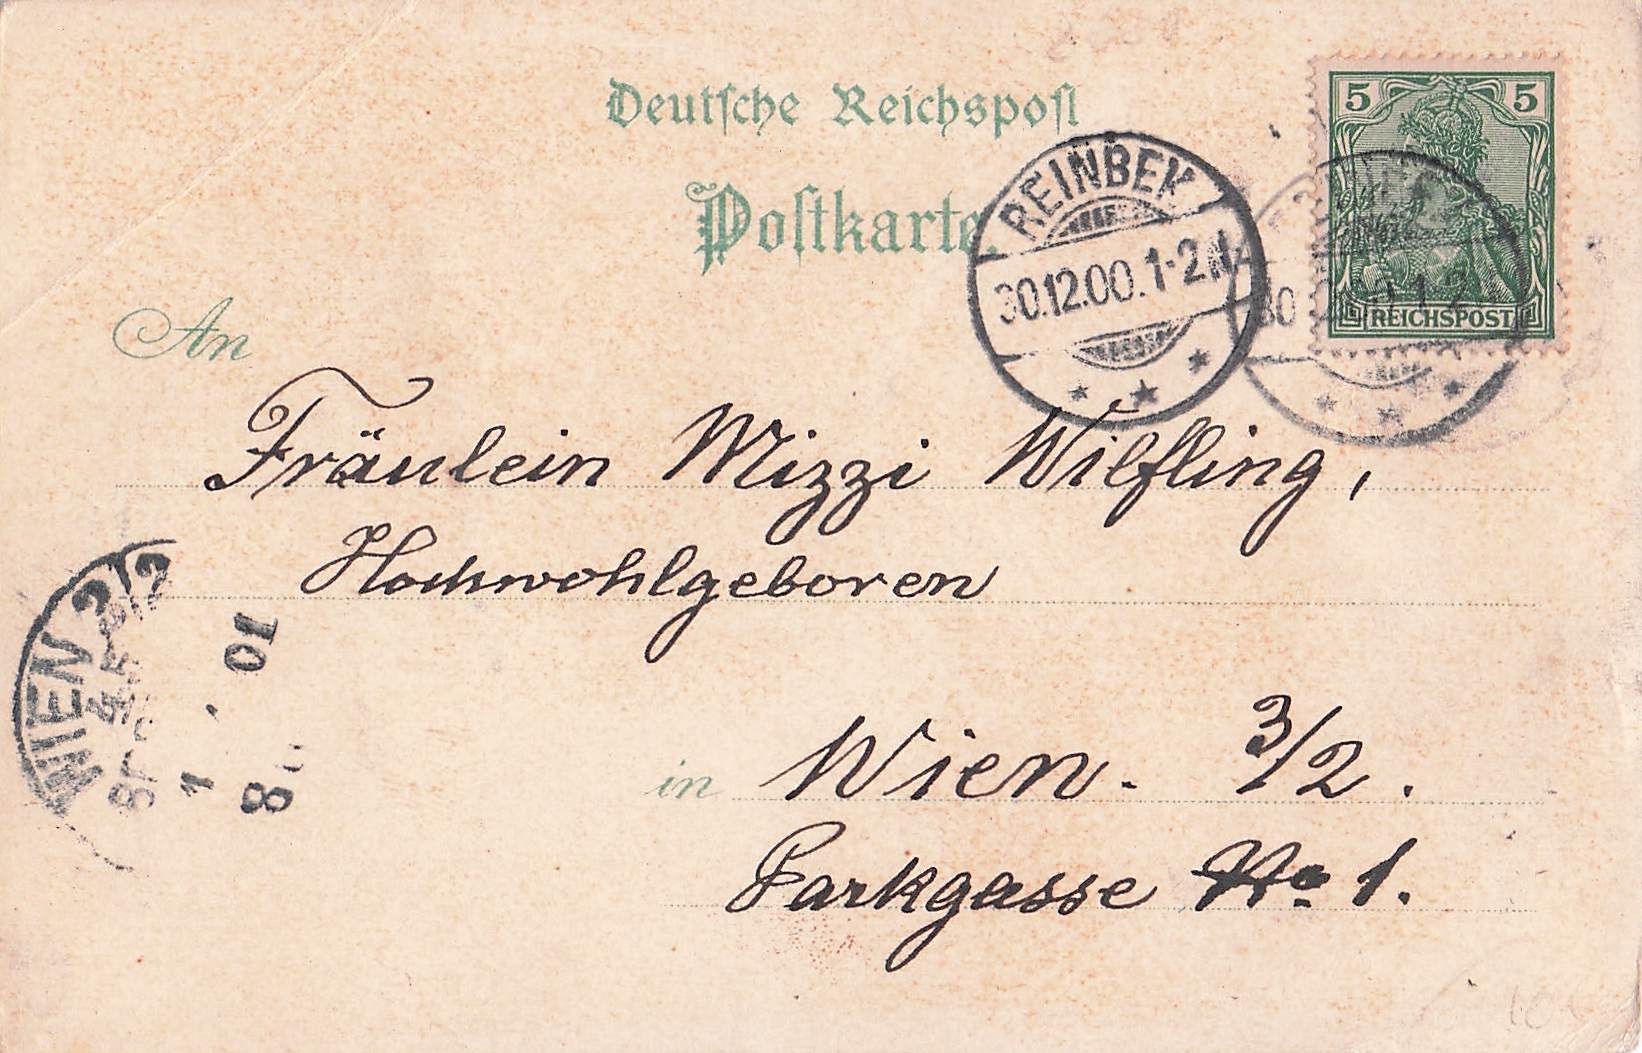 Deutsche Reichspost
Postkarte.
5 5
REICHSPOST
REINBEK
30.12.00. 1-2 N.
An
Fräulein Mizzi Wilfling,
Hochwohlgeboren
in Wien. 3/2.
Parkgasse No 1.
WIEN 3/2
1 01
8